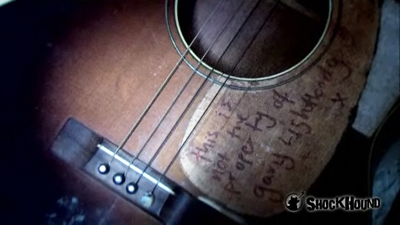 this is
not the
property of
gary lightbody
x
SHOCKHOUND